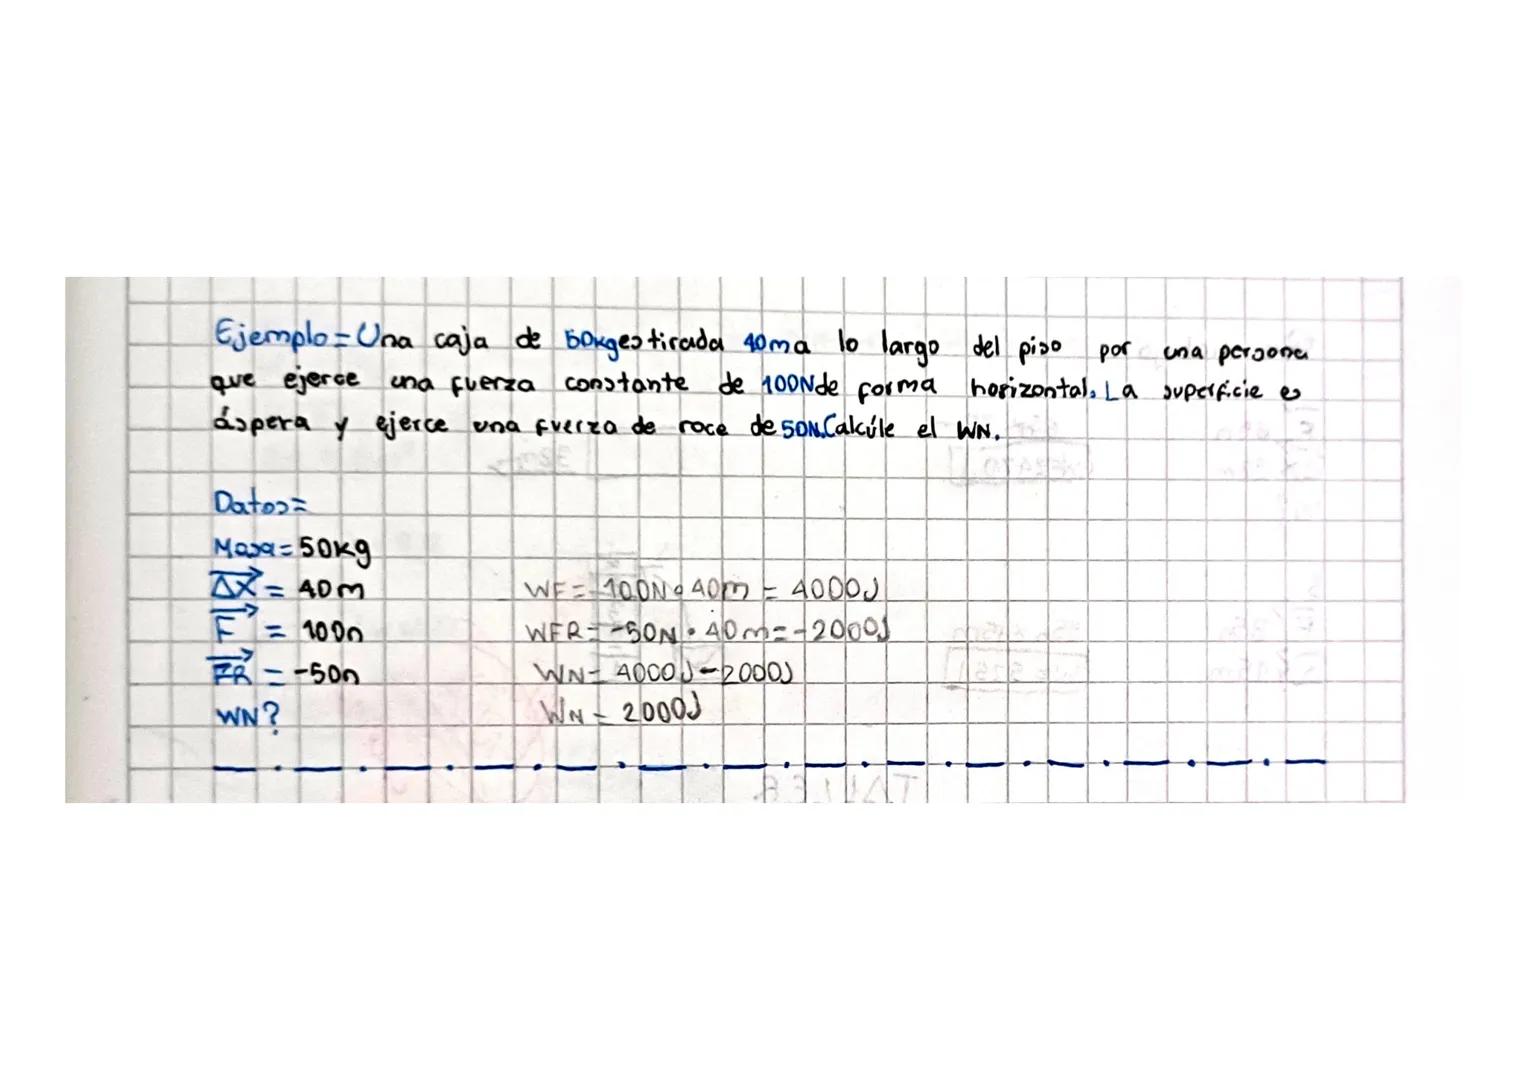 Ejemplo= Una caja de 50kg es tirada 40m a lo largo del piso por una persona
que ejerce una fuerza constante de 100N de forma horizontal. La superficie es
áspera y ejerce una fuerza de roce de 50N. Calcúle el WN.
Datos=
Masa= 50kg
ΔX = 40m
WF= 100N • 40m = 4000J
F = 100n
WFR= -50N • 40m = -2000J
FR = -50n
WN= 4000J - 2000J
WN?
WN = 2000J
TALLER